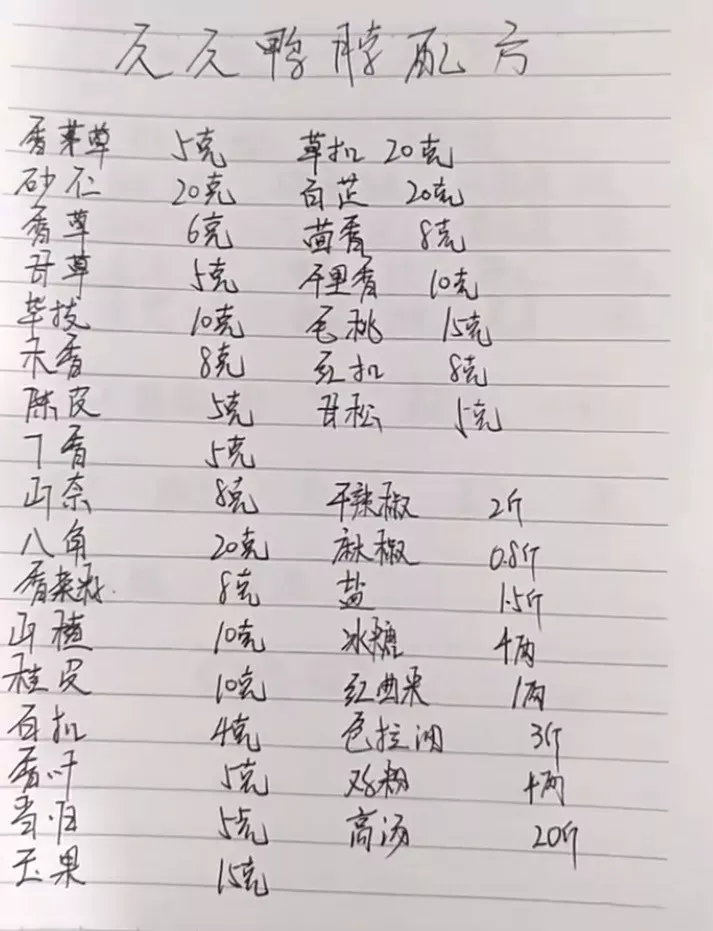 久久鸭脖配方
香茅草 5克 草扣 20克
砂仁 20克 白芷 20克
香草 6克 茴香 8克
甘草 5克 千里香 10克
毕技 10克 毛桃 15克
木香 8克 红扣 8克
陈皮 5克 甘松 5克
丁香 5克
山奈 8克 干辣椒 2斤
八角 20克 麻椒 0.8斤
香菜籽 8克 盐 1.5斤
山楂 10克 冰糖 4两
桂皮 10克 红曲米 1两
白扣 4克 色拉油 3斤
香叶 5克 鸡粉 4两
当归 5克 高汤 20斤
玉果 15克